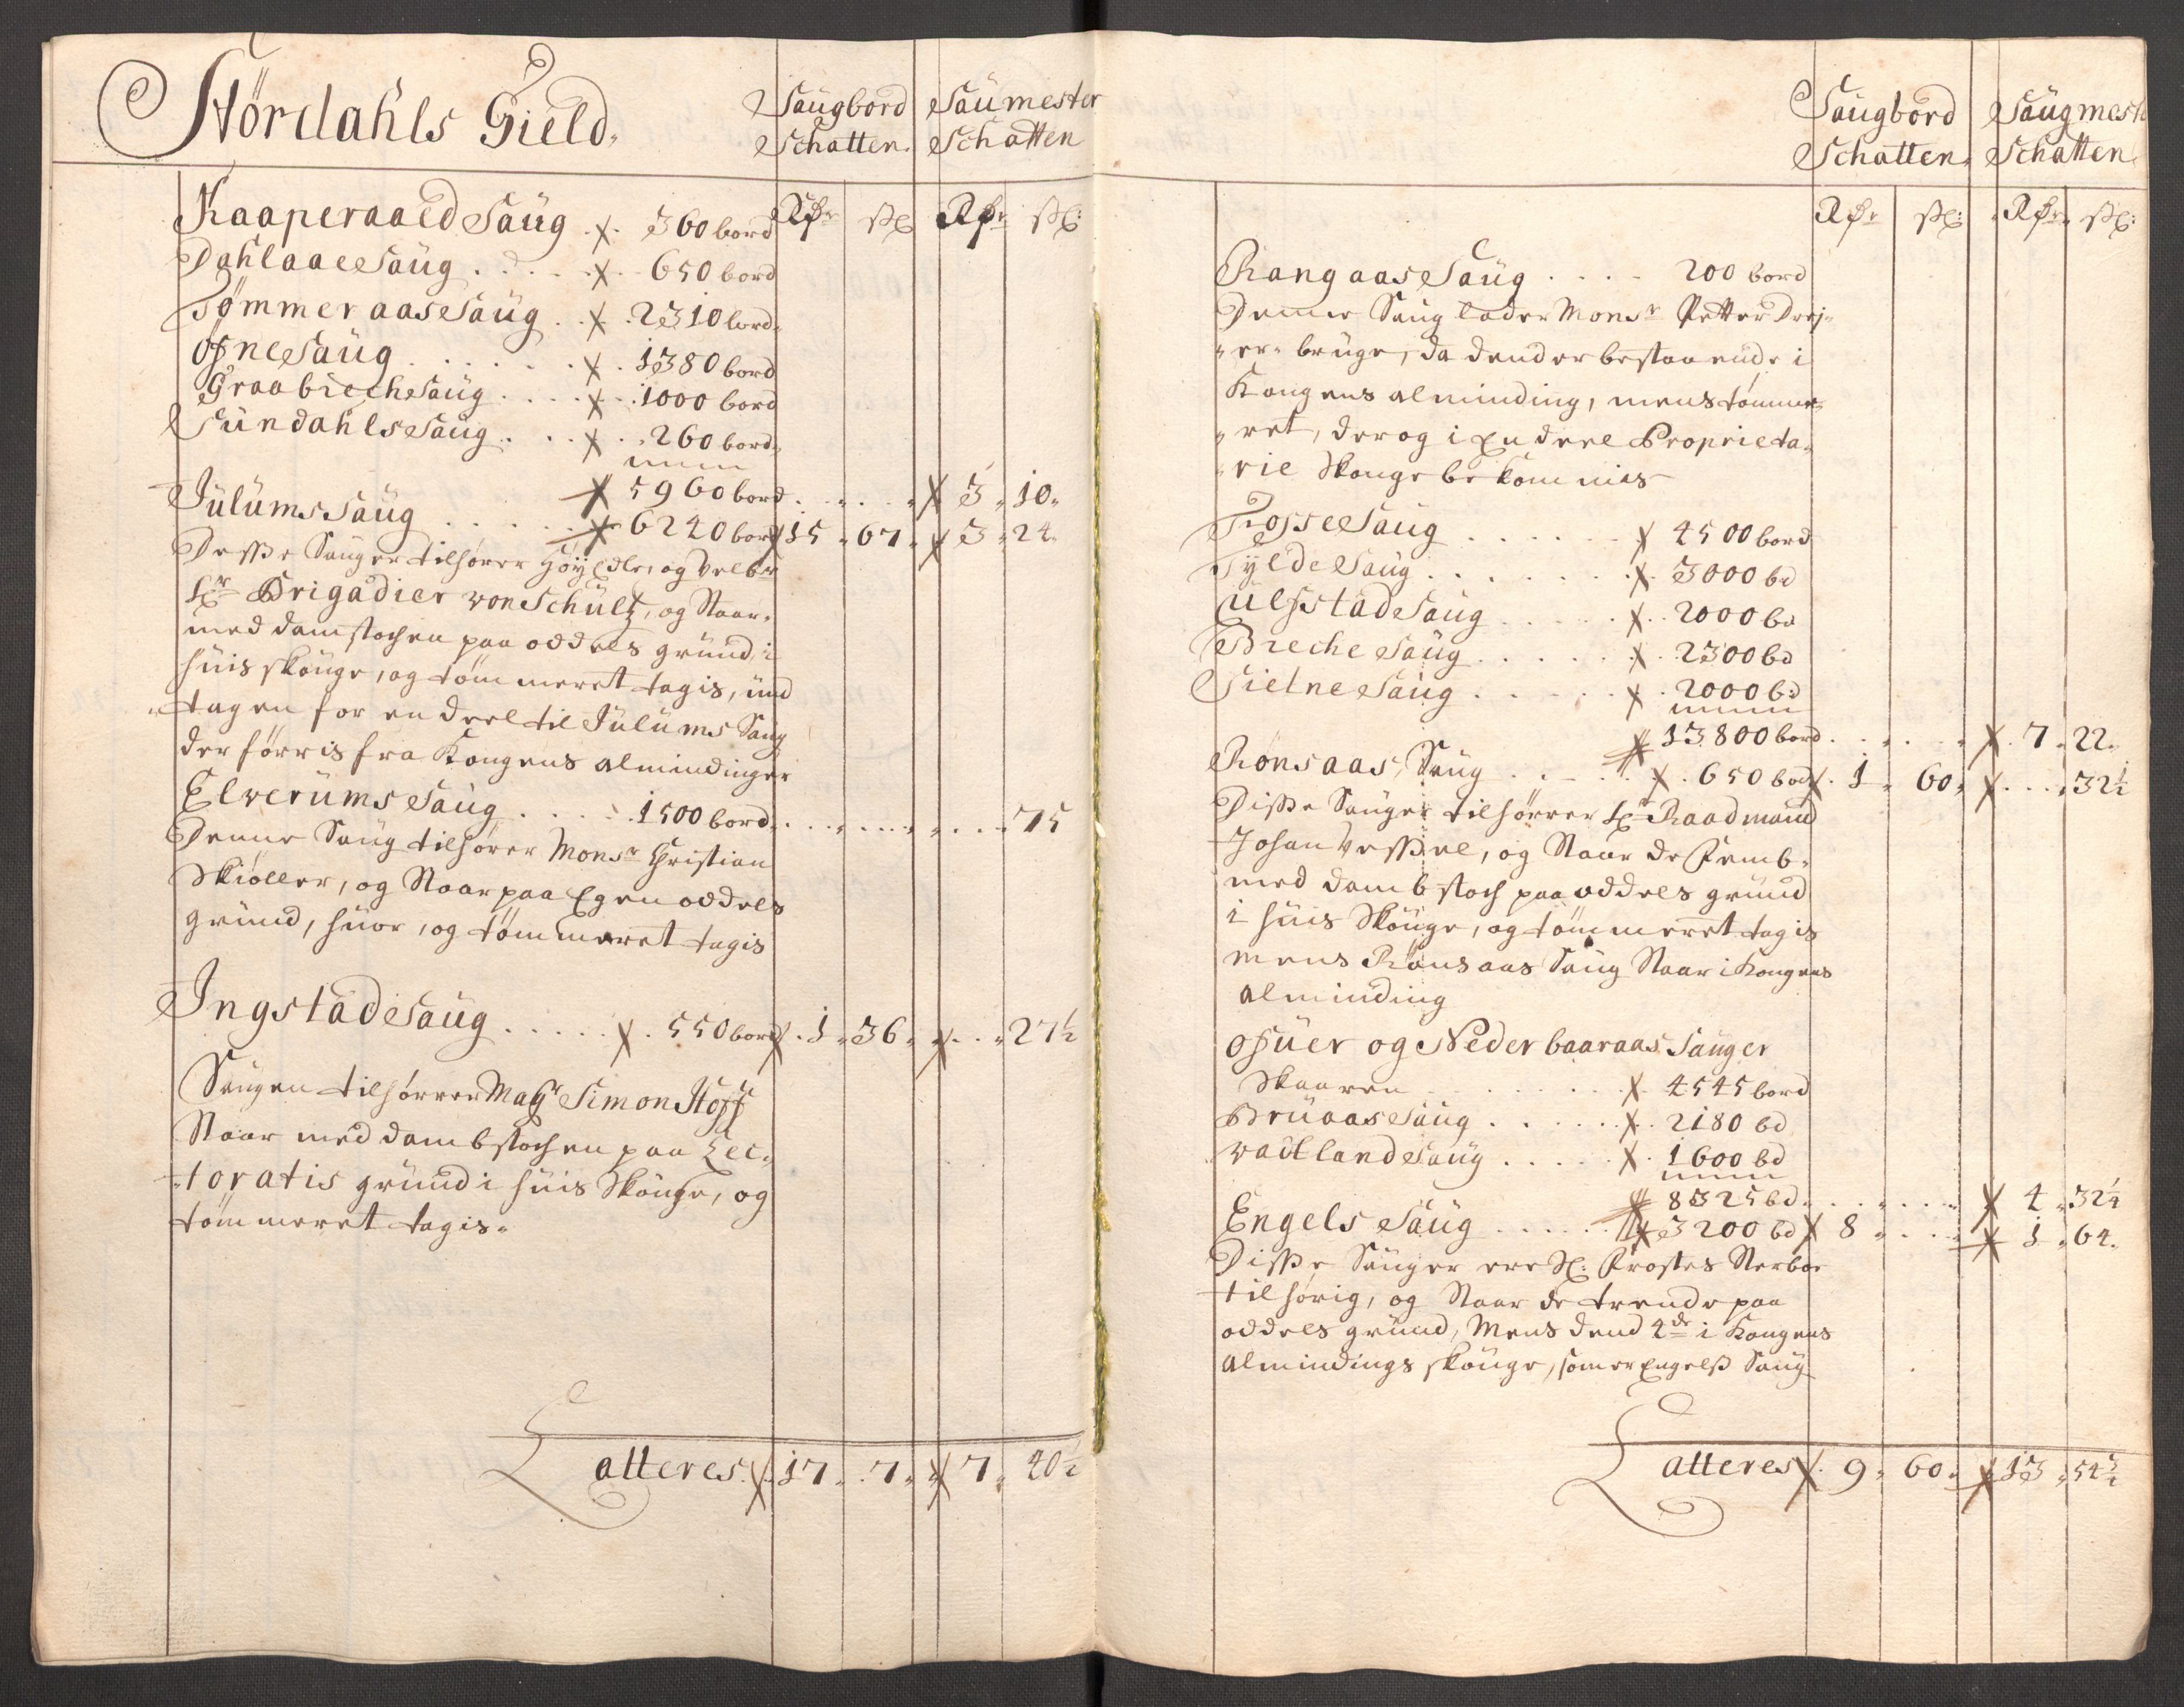 Stördahls Gield.
Saugbord Schatten. Saumester Schatten
Rdr ß Rdr ß
Kaaperaaed Saug x 360 bord
Dahlaae Saug x 650 bord
Tømmeraas Saug x 2310 bord
Ofne Saug x 1380 bord
Graabrech Saug x 1000 bord
Sundahls Saug x 260 bord
x 5960 bord x 3 10
Julums Saug x 6240 bord x 15 67 x 3 24
Desse Sauger tilhører Høyedle, og Velbr
Hr Brigadier von Schultz, og Staar
med damstochen paa oddels grund, i
huis skouge, og tømmeret tagis, und
tagen for en deel til Julums Saug
der førris fra Kongens alminding
Elverums Saug 1500 bord 75
Denne Saug tilhører Monsr Christian
Skiøller, og Staar paa Egen oddels
grund, huor, og tømmeret tagis
Ingstad Saug x 550 bord x 1 36 x 27½
Saugen tilhører Magr Simon Hoff
Staar med dambstochen paa Lec-
toratis grund i huis Skouge, og
tømmeret tagis
Latteres x 17 7 x 7 40½
Saugbord Schatten. Saugmest Schatten
Rdr ß Rdr ß
Rangaas Saug 200 bord
Denne Saug lader Monsr Petter Drej-
er bruge, da dend er bestaaende i
Kongens alminding, mens tømme-
ret, der og i En deel Proprieta-
rie Skouge bekommis
Fosse Saug x 4500 bord
Tylde Saug x 3000 bd
Ulfstad Saug x 2000 bd
Breche Saug x 2300 bd
Sielne Saug x 2000 bd
x 13800 bord x 7 22
Rønsaas Saug x 650 bord x 1 60 x 32½
Disse Sauger tilhører Hr Raadmand
Johan Vessel, og Staar de Femb
med dambstoch paa oddels grund
i huis Skouge, og tømmeret tagis
mens Rønsaas Saug Staar i Kongens
alminding
Ofuer og Neder baaraas Sauger
Skaaren x 4545 bord
Bruaas Saug x 2180 bd
Vadtland Saug x 1600 bd
x 8325 bd x 4 32¼
Engels Saug x 3200 bd x 8 x 1 64
Disse Sauger ere Sl: Prostes Sterboe
tilhørig, og Staar de trende paa
oddels grund, Mens dend 4de i Kongens
almindings skouge, som er Engelss Saug
Latteres x 9 60 x 13 54¾